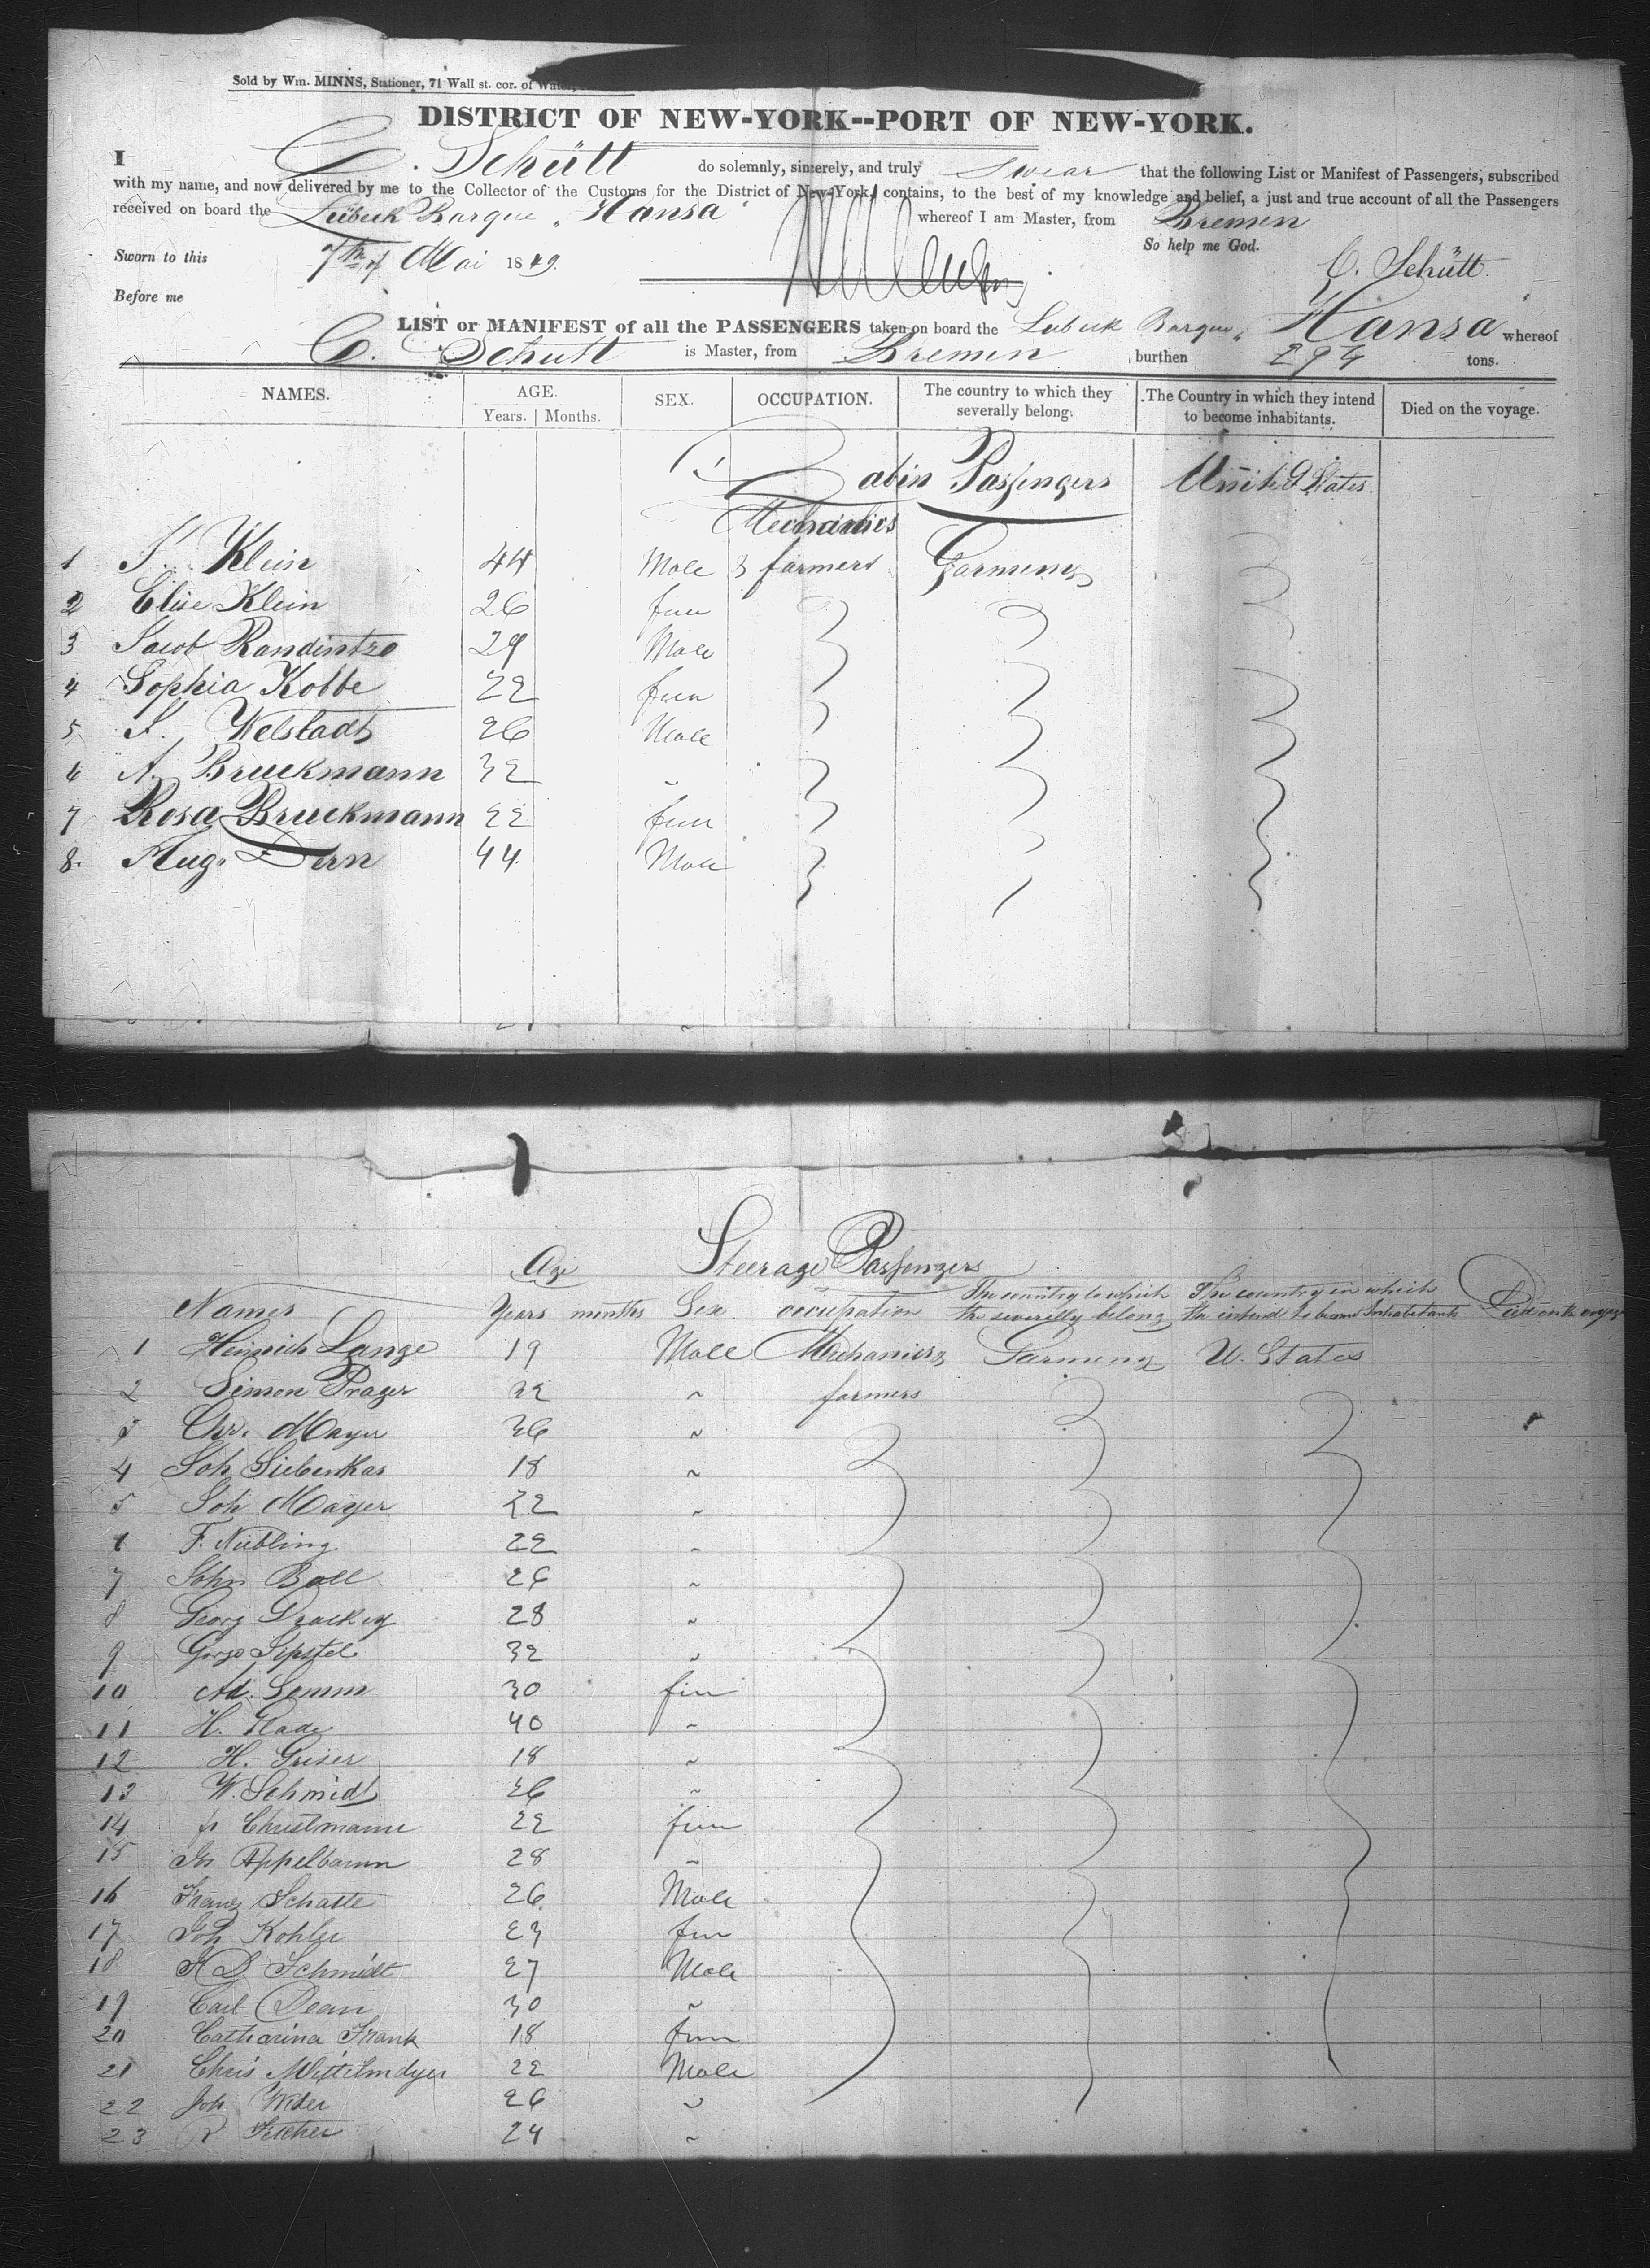 Sold by Wm. MINNS, Stationer, 71 Wall st. cor. of Water,
DISTRICT OF NEW-YORK--PORT OF NEW-YORK.
I C. Schütt do solemnly, sincerely, and truly swear that the following List or Manifest of Passengers, subscribed
with my name, and now delivered by me to the Collector of the Customs for the District of New-York, contains, to the best of my knowledge and belief, a just and true account of all the Passengers
received on board the Lübeck Barque "Hansa" whereof I am Master, from Bremen
So help me God.
Sworn to this 7th of Mai 1849.
C. Schütt
Before me
LIST or MANIFEST of all the PASSENGERS taken on board the Lubeck Barque "Hansa" whereof
C. Schutt is Master, from Bremen burthen 294 tons.
NAMES. AGE. Years. Months. SEX. OCCUPATION. The country to which they severally belong. The Country in which they intend to become inhabitants. Died on the voyage.
Cabin Passengers United States.
Mechanics
1 J. Klein 44 Male & farmers Germany
2 Elise Klein 26 fem
3 Jacob 29 Male
4 Sophia Kobbe 22 fem
5 J. Welstadt 26 Male
6 A. Bruckmann 32 "
7 Rosa Bruckmann 22 fem
8. Aug. Dern 44 Male
Steerage Passengers
Age
Names Years months Sex occupation The country to which the severally belong The country in which the intend to become Inhabitants Died on the voyage
1 Heinrich Lange 19 Male Mechanics Germany U. States
2 Simon Prager 22 " farmers
3 Chr. Mayer 36 "
4 Joh Siebenkas 18 "
5 Joh Mayer 22 "
6 F. Nübling 22 "
7 John Boll 26 "
8 Georg 28 "
9 32 "
10 Ad. 30 fem
11 H. Rade 40 "
12 H. Griser 18 "
13 W. Schmidt 26 "
14 Christmann 22 fem
15 Appelbaum 28 "
16 Franz Schatte 26 Male
17 Joh Kohler 23 fem
18 Schmidt 27 Male
19 Carl Dean 30 "
20 Catharina Frank 18 fem
21 Chris Mittelmdyer 22 Male
22 Joh 26 "
23 24 "